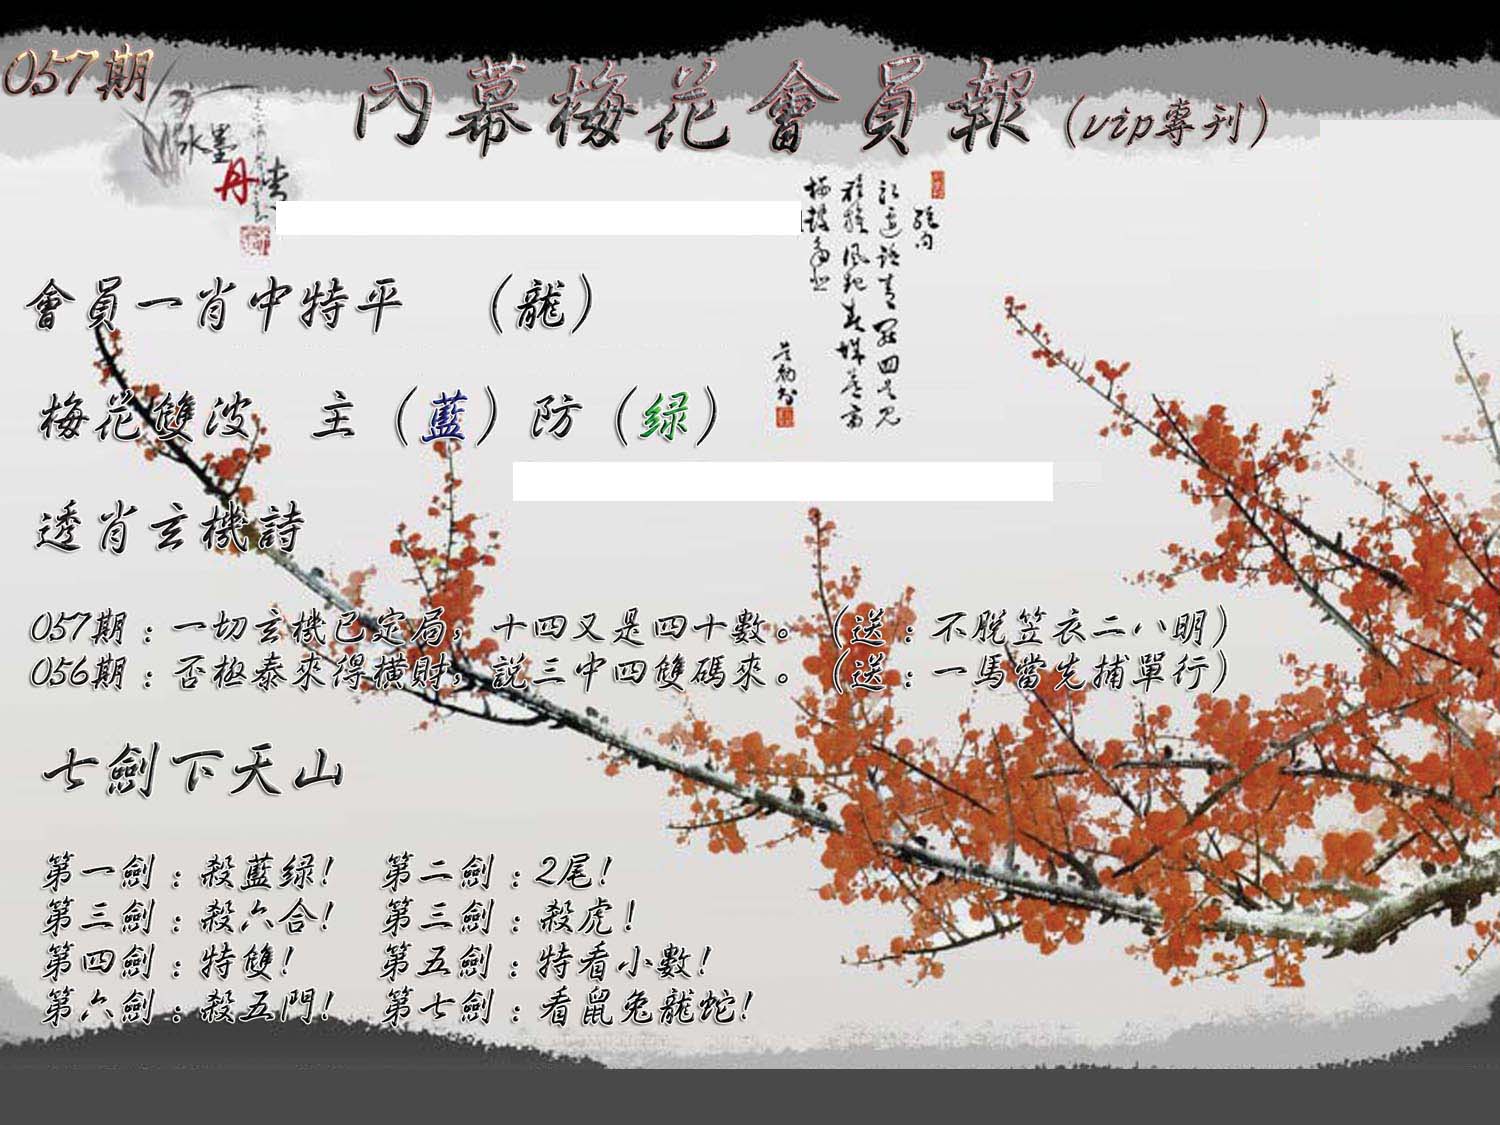 057期
內幕梅花會員報（vip專刊）
水墨
丹青
會員一肖中特平　（龍）
梅花雙波　主（藍）防（绿）
透肖玄機詩
057期：一切玄機已定局，十四又是四十數。（送：不脫笠衣二八明）
056期：否極泰來得橫財，説三中四雙碼來。（送：一馬當先捕單行）
七劍下天山
第一劍：殺藍绿！　第二劍：2尾！
第三劍：殺六合！　第三劍：殺虎！
第四劍：特雙！　第五劍：特看小數！
第六劍：殺五門！　第七劍：看鼠兔龍蛇！